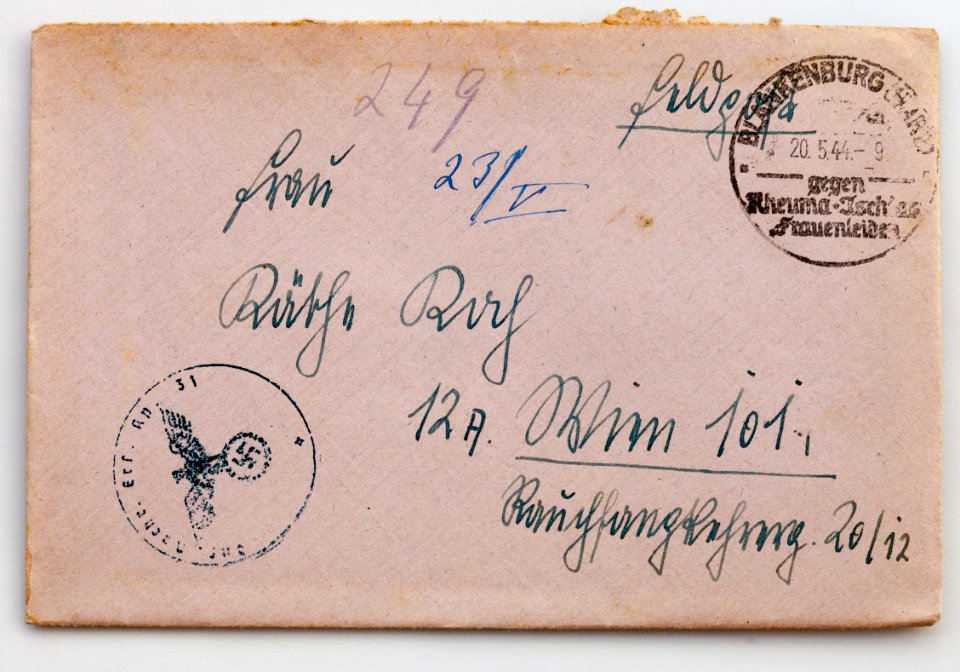 249
Feldpost
BLANKENBURG (HARZ)
20.5.44.- 9
gegen
Rheuma-Isch as
Frauenleiden
Frau
23/V
Käthe Koch
12A. Wien 101.
Rauchfangkehrerg. 20/12
Ers. Kp. 31